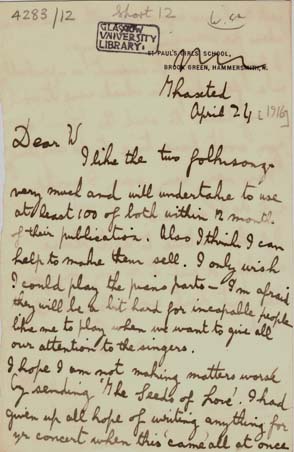 4283/12
Short 12
W. ca
GLASGOW
UNIVERSITY
LIBRARY.
ST PAUL'S GIRLS' SCHOOL,
BROOK GREEN, HAMMERSMITH, W.
Thaxted
April 24 [1916]
Dear W
I like the two folksongs
very much and will undertake to use
at least 100 of both within 12 months
of their publication. Also I think I can
help to make them sell. I only wish
I could play the piano parts – I'm afraid
they will be a bit hard for incapable people
like me to play when we want to give all
our attention to the singers.
I hope I am not making matters worse
by sending 'The Seeds of Love'. I had
given up all hope of writing anything for
yr concert when this 'came' all at once